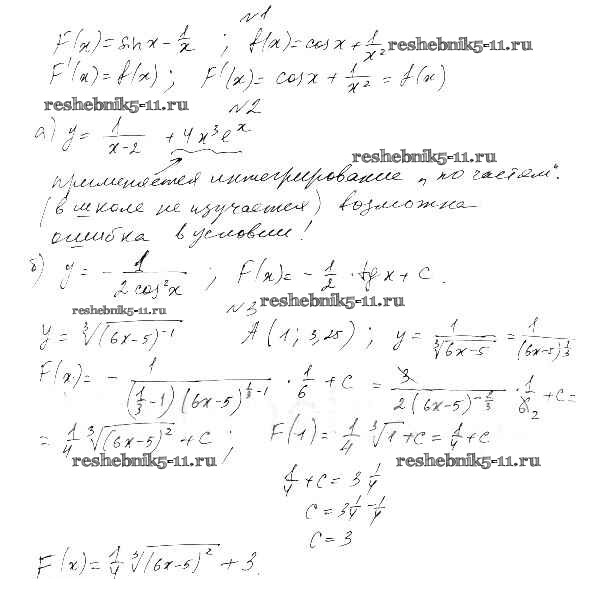 №1
F(x)=sinx-1/x ; f(x)=cosx+1/x² reshebnik5-11.ru
F'(x)=f(x); F'(x)=cosx+1/x²=f(x)
reshebnik5-11.ru №2
а) y=1/(x-2) +4x³eˣ
reshebnik5-11.ru
применяется интегрирование „по частям".
(в школе не изучается) возможна
ошибка в условии!
б) y=-1/(2cos²x) ; F(x)=-1/2·tgx+C.
reshebnik5-11.ru №3 reshebnik5-11.ru
y=∛((6x-5)⁻¹) A(1; 3,25) ; y=1/∛(6x-5)=1/(6x-5)^(1/3)
F(x)=-1/((1/3-1)(6x-5)^(1/3-1))·1/6+C=3/(2(6x-5)^(-2/3))·1/6 2+C=
=1/4∛((6x-5)²)+C; F(1)=1/4∛1+C=1/4+C
reshebnik5-11.ru reshebnik5-11.ru
1/4+C=3 1/4
C=3 1/4-1/4
C=3
F(x)=1/4∛((6x-5)²)+3.